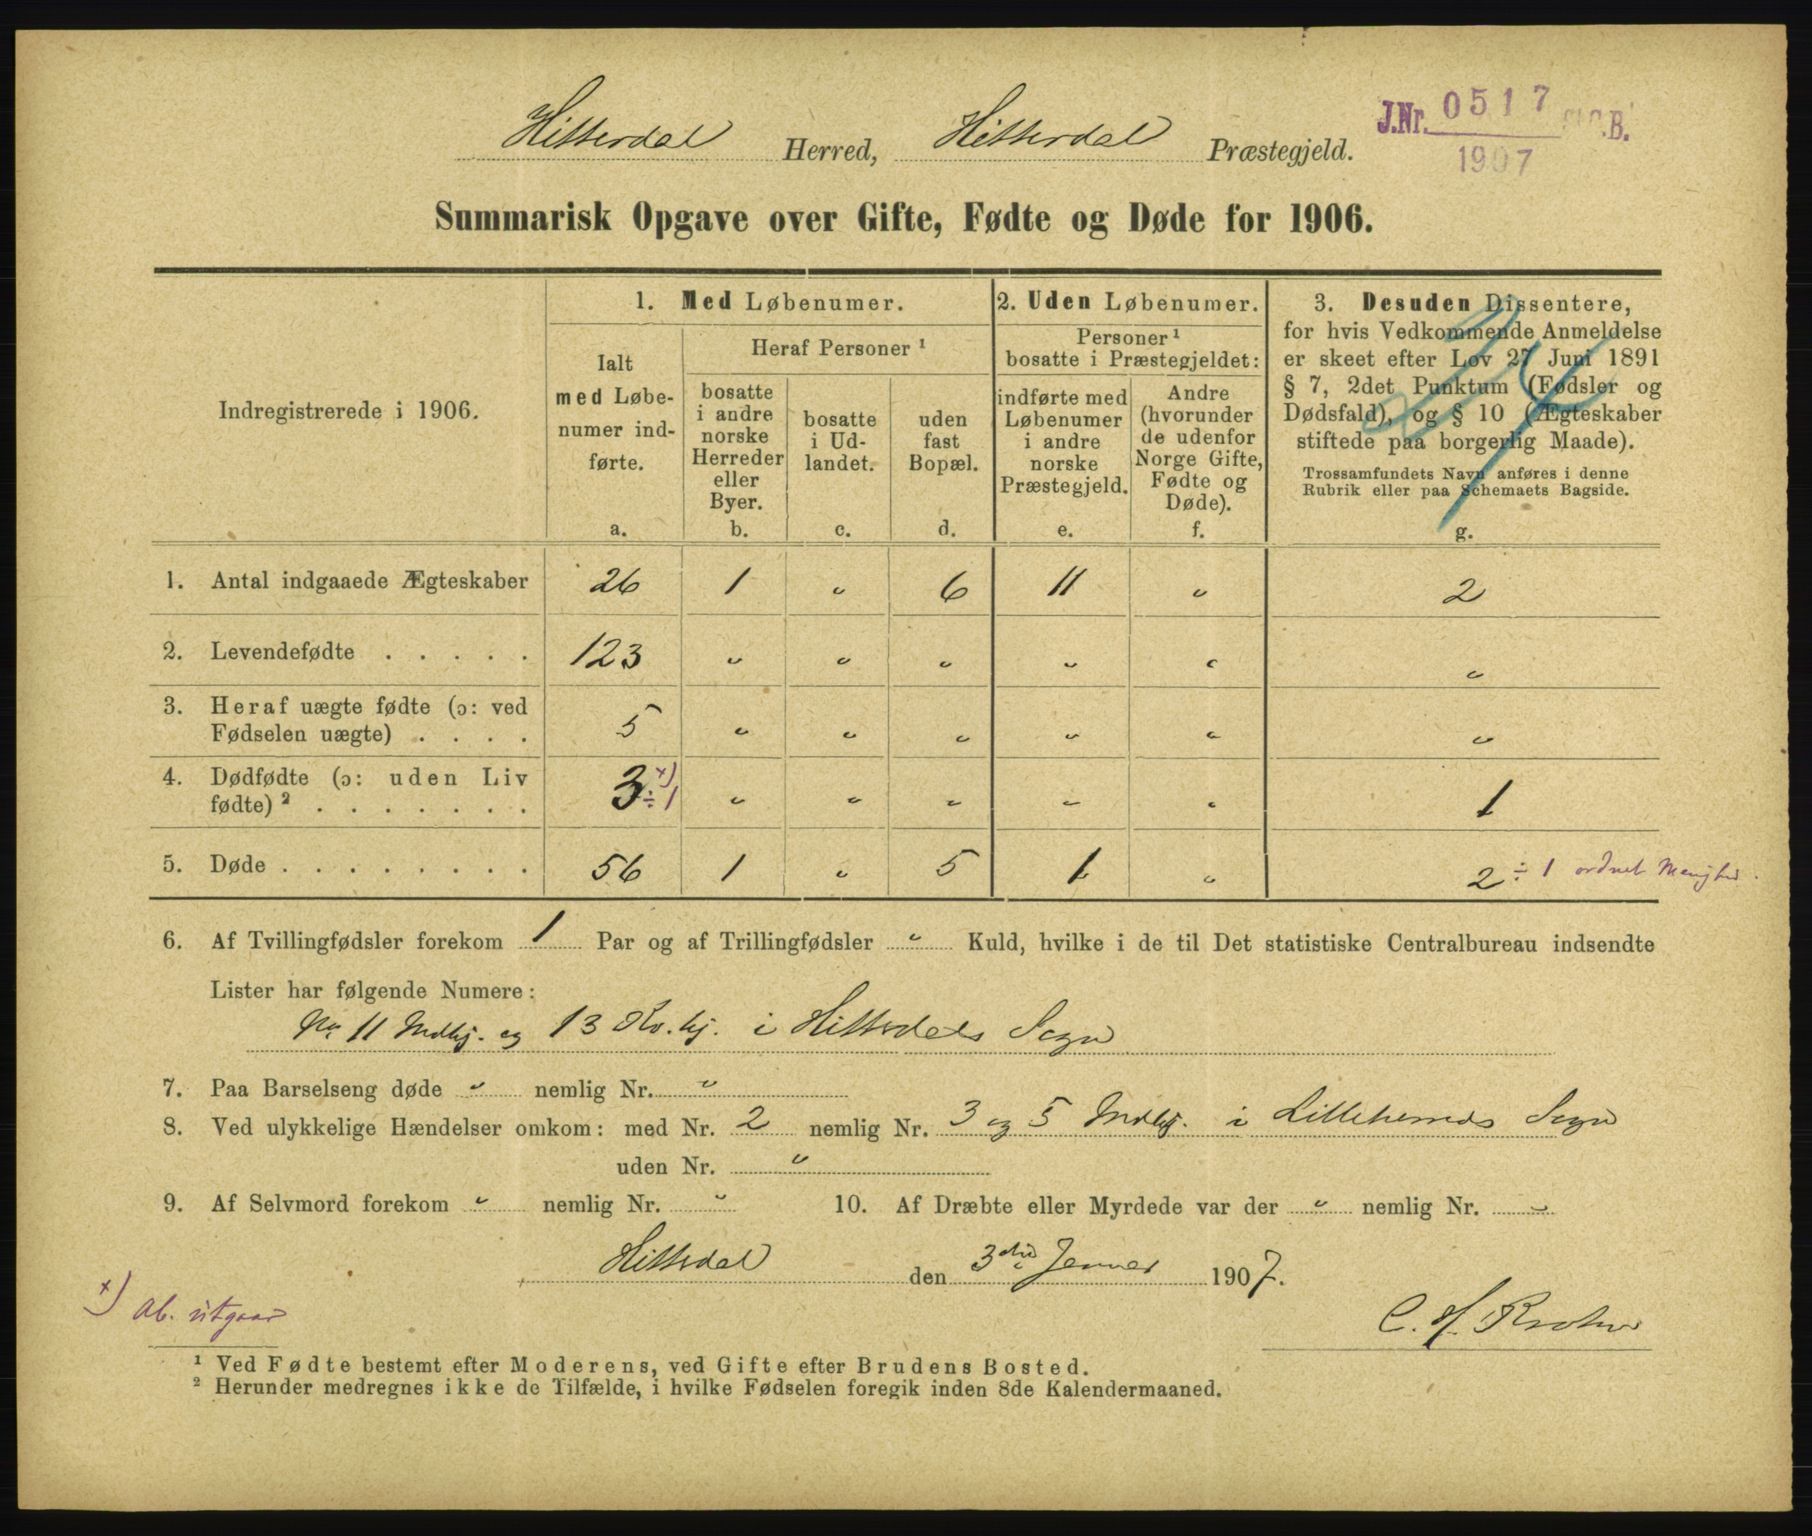 Hitterdal Herred, Hitterdal Præstegjeld.
J.Nr. 0517 St.C.B.
1907
Summarisk Opgave over Gifte, Fødte og Døde for 1906.
Indregistrerede i 1906.
1. Med Løbenumer.
Ialt med Løbenumer indførte.
a.
Heraf Personer ¹
bosatte i andre norske Herreder eller Byer.
b.
bosatte i Udlandet.
c.
uden fast Bopæl.
d.
2. Uden Løbenumer.
Personer ¹ bosatte i Præstegjeldet:
indførte med Løbenumer i andre norske Præstegjeld.
e.
Andre (hvorunder de udenfor Norge Gifte, Fødte og Døde).
f.
3. Desuden Dissentere,
for hvis Vedkommende Anmeldelse
er skeet efter Lov 27 Juni 1891
§ 7, 2det Punktum (Fødsler og
Dødsfald), og § 10 (Ægteskaber
stiftede paa borgerlig Maade).
Trossamfundets Navn anføres i denne
Rubrik eller paa Schemaets Bagside.
g.
1. Antal indgaaede Ægteskaber 26 1 " 6 11 " 2
2. Levendefødte . . . . . 123 " " " " " "
3. Heraf uægte fødte (ɔ: ved
Fødselen uægte) . . . . 5 " " " " " "
4. Dødfødte (ɔ: uden Liv
fødte) ² . . . . . . . 3 ×) ÷1 " " " " " 1
5. Døde . . . . . . . . 56 1 " 5 1 " 2 ÷ 1 ordnet Menighed.
6. Af Tvillingfødsler forekom 1 Par og af Trillingfødsler " Kuld, hvilke i de til Det statistiske Centralbureau indsendte
Lister har følgende Numere:
No 11 Mdkj. og 13 Kv.kj. i Hitterdals Sogn
7. Paa Barselseng døde " nemlig Nr. "
8. Ved ulykkelige Hændelser omkom: med Nr. 2 nemlig Nr. 3 og 5 Mdkj. i Lilleherreds Sogn
uden Nr. "
9. Af Selvmord forekom " nemlig Nr. " 10. Af Dræbte eller Myrdede var der " nemlig Nr. "
Hitterdal den 3die Januar 1907.
×) Ab. utgaar
C. H. Krohn
¹ Ved Fødte bestemt efter Moderens, ved Gifte efter Brudens Bosted.
² Herunder medregnes ikke de Tilfælde, i hvilke Fødselen foregik inden 8de Kalendermaaned.